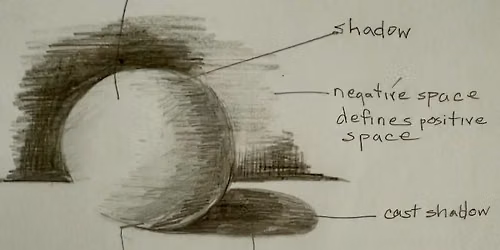 shadow
negative space
defines positive
space
cast shadow